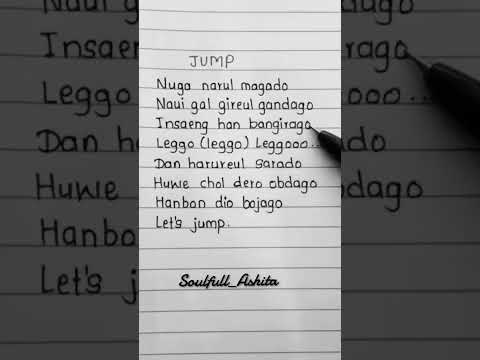 JUMP
Nuga narul magado
Naui gal gireul gandago
Insaeng han bangirago
Leggo (leggo) Leggooo...
Dan harureul sarado
Huwe chol dero obdago
Hanbon dio bojago
Let's jump.
Soulfull_Ashita